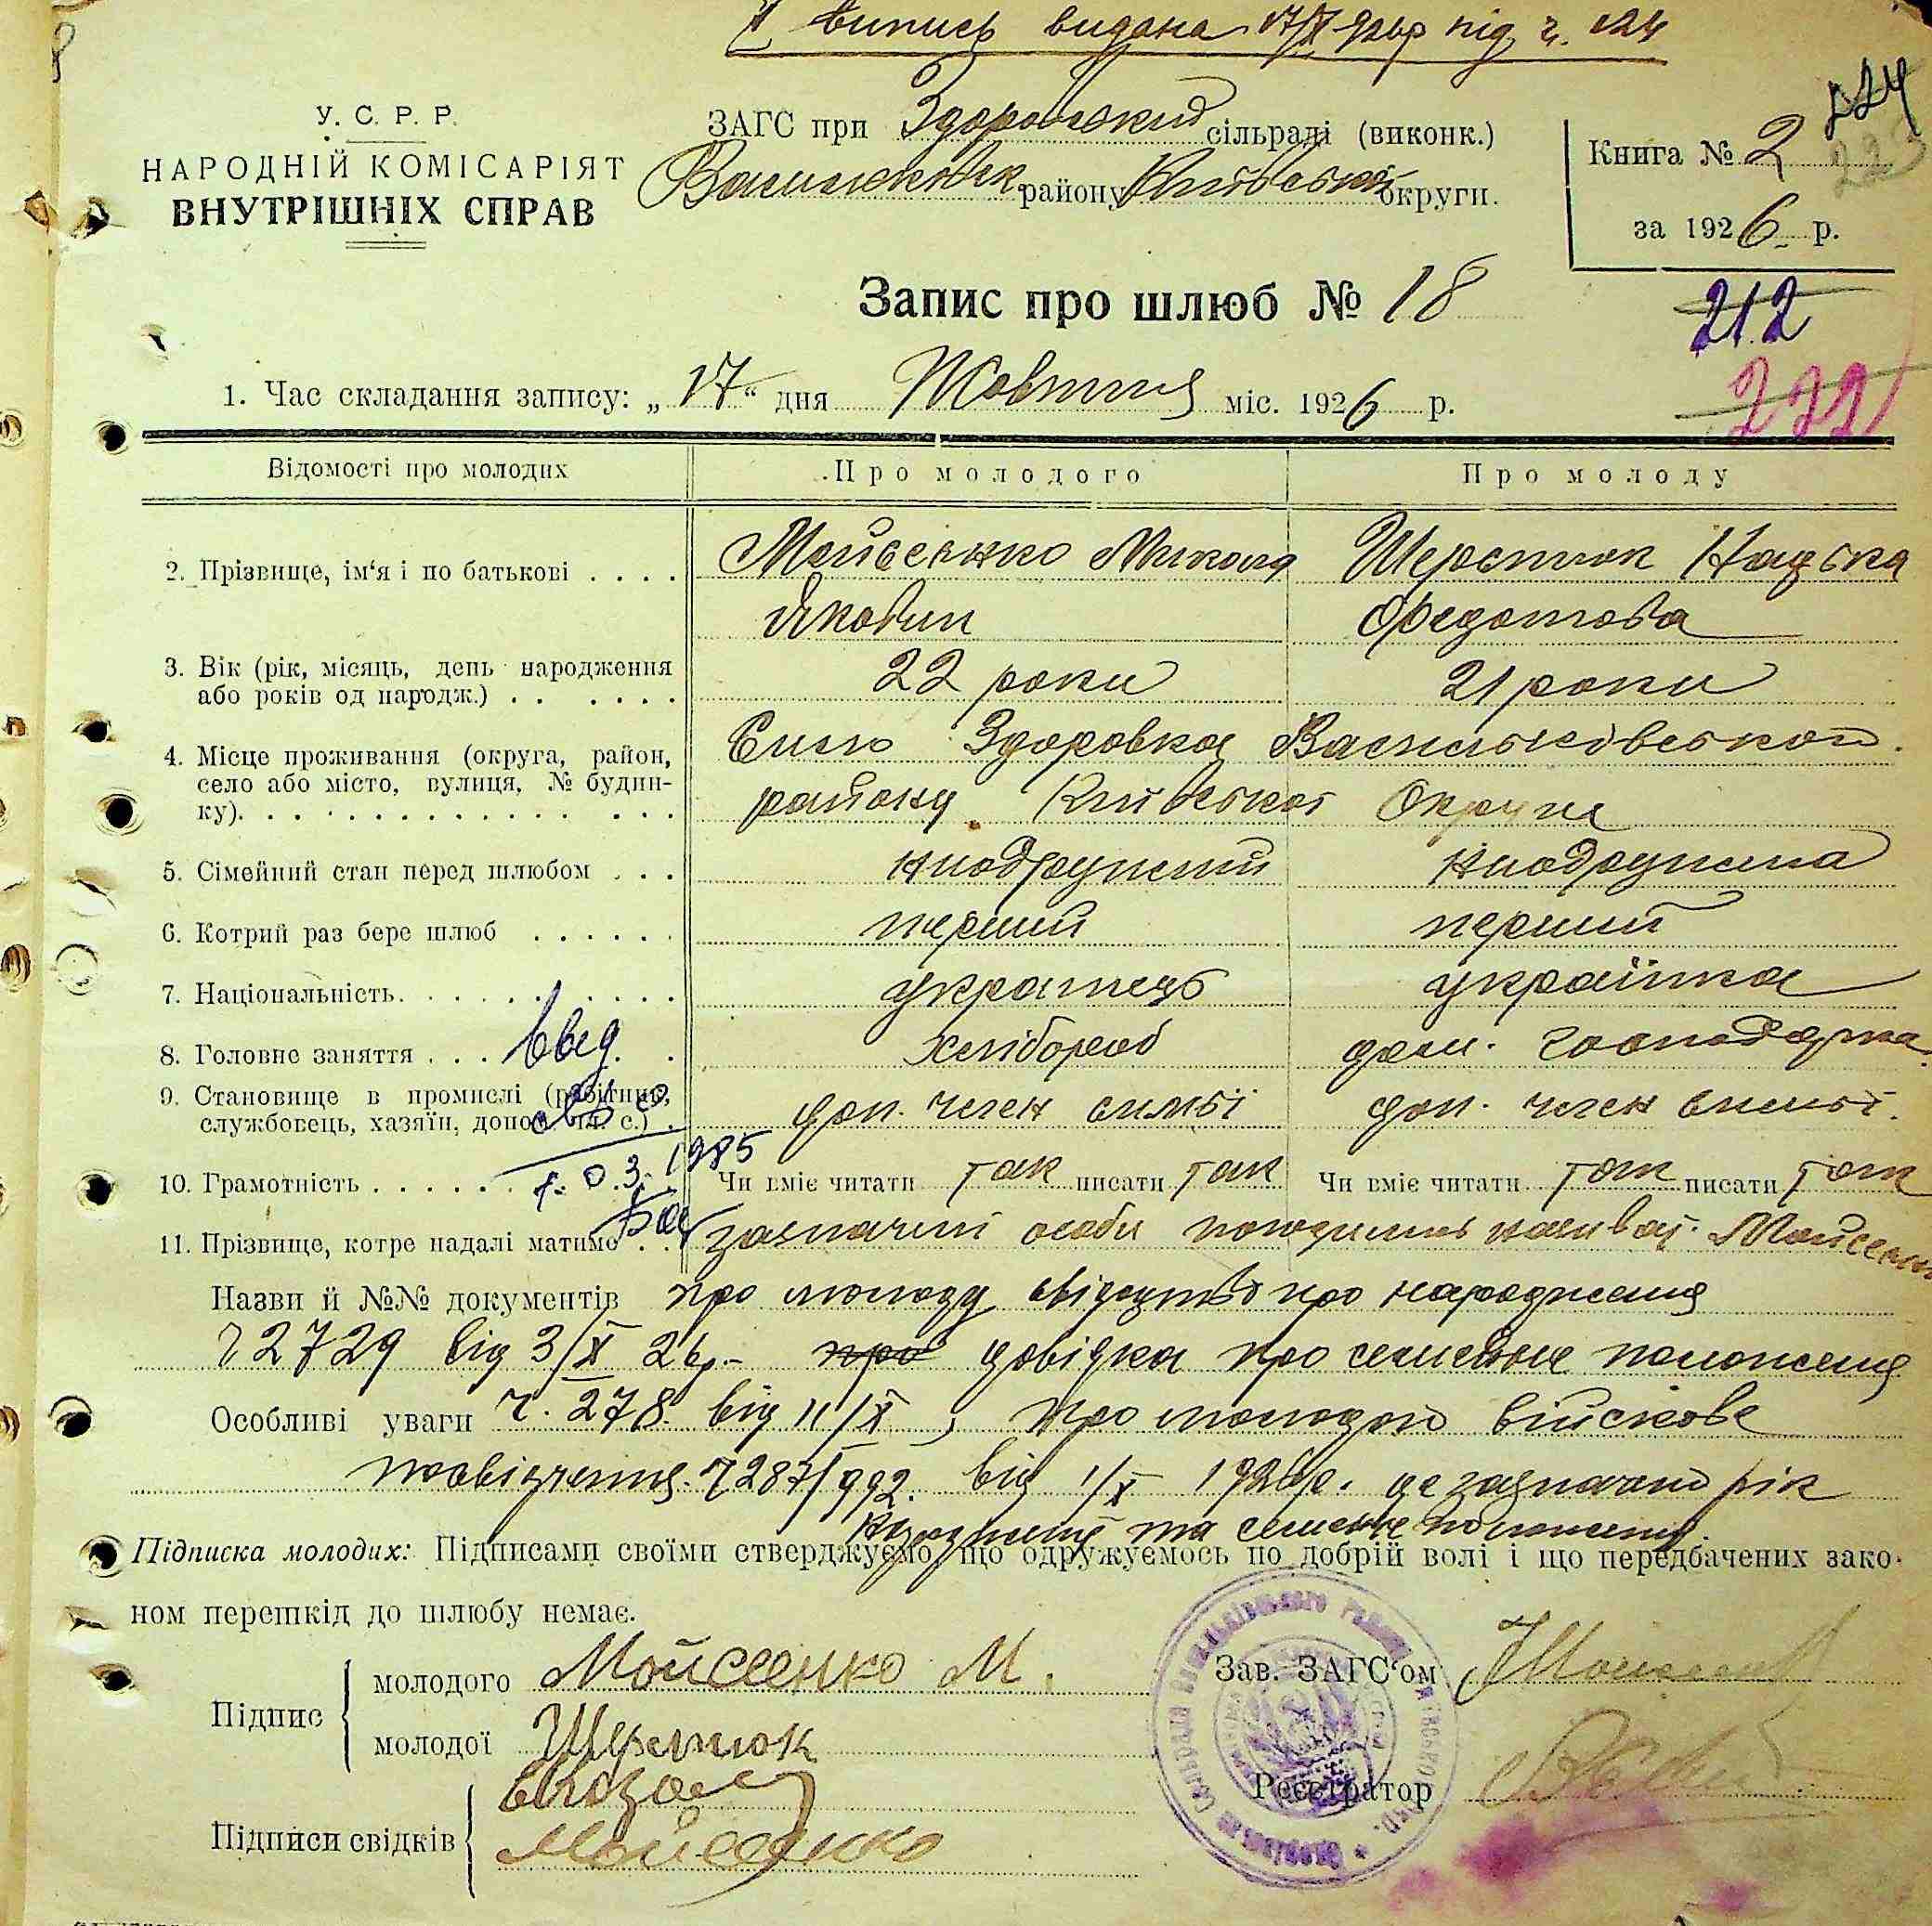 випись видана 17/X 26р під ч. 124
224
У. С. Р. Р.
НАРОДНІЙ КОМІСАРІЯТ
ВНУТРІШНІХ СПРАВ
ЗАГС при Здоровский сільраді (виконк.)
Васильківськ. району Київської округи.
Книга № 2
за 1926 р.
Запис про шлюб № 18
212
222
1. Час складання запису: „17“ дня Жовтня міс. 1926 р.
Відомості про молодих Про молодого Про молоду
2. Прізвище, ім‘я і по батькові . . . . Мойсеєнко Микола Шерстюк Надська
Якович Федотова
3. Вік (рік, місяць, день народження
або років од народж.) . . . . . . 22 роки 21 роки
4. Місце проживання (округа, район,
село або місто, вулиця, № будин-
ку). Село Здоровка Васильківського
району Київської Округи
5. Сімейний стан перед шлюбом . . . ниодружений ниодружена
6. Котрий раз бере шлюб . . . . . . перший перший
7. Національність. українець українка
8. Головне заняття . . . хлібороб дом. господарка.
9. Становище в промислі (робітник,
службовець, хазяїн, допом. чл. с.) . доп. член симьі доп. член симьі.
10. Грамотність . . . . . Чи вміє читати так писати так Чи вміє читати так писати так
1985
11. Прізвище, котре надалі матиме . . зазначені особи погодились
Назви й №№ документів про молоду свідоцтво про народження
ч 2729 від 3/X 26р.- про довідка про семейное положення
Особливі уваги ч. 278. від 11/X, про молодого військове
посвідчення. ч 287/992. від 1/X 1926р. де зазначено рік
народження та семейне положення.
Підписка молодих: Підписами своїми стверджуємо, що одружуємось по добрій волі і що передбачених зако-
ном перешкід до шлюбу немає.
Підпис
молодого Мойсеенко М.
молодої Шерстюк
Підписи свідків
Мойсеенко
Зав. ЗАГС‘ом
Реєстратор